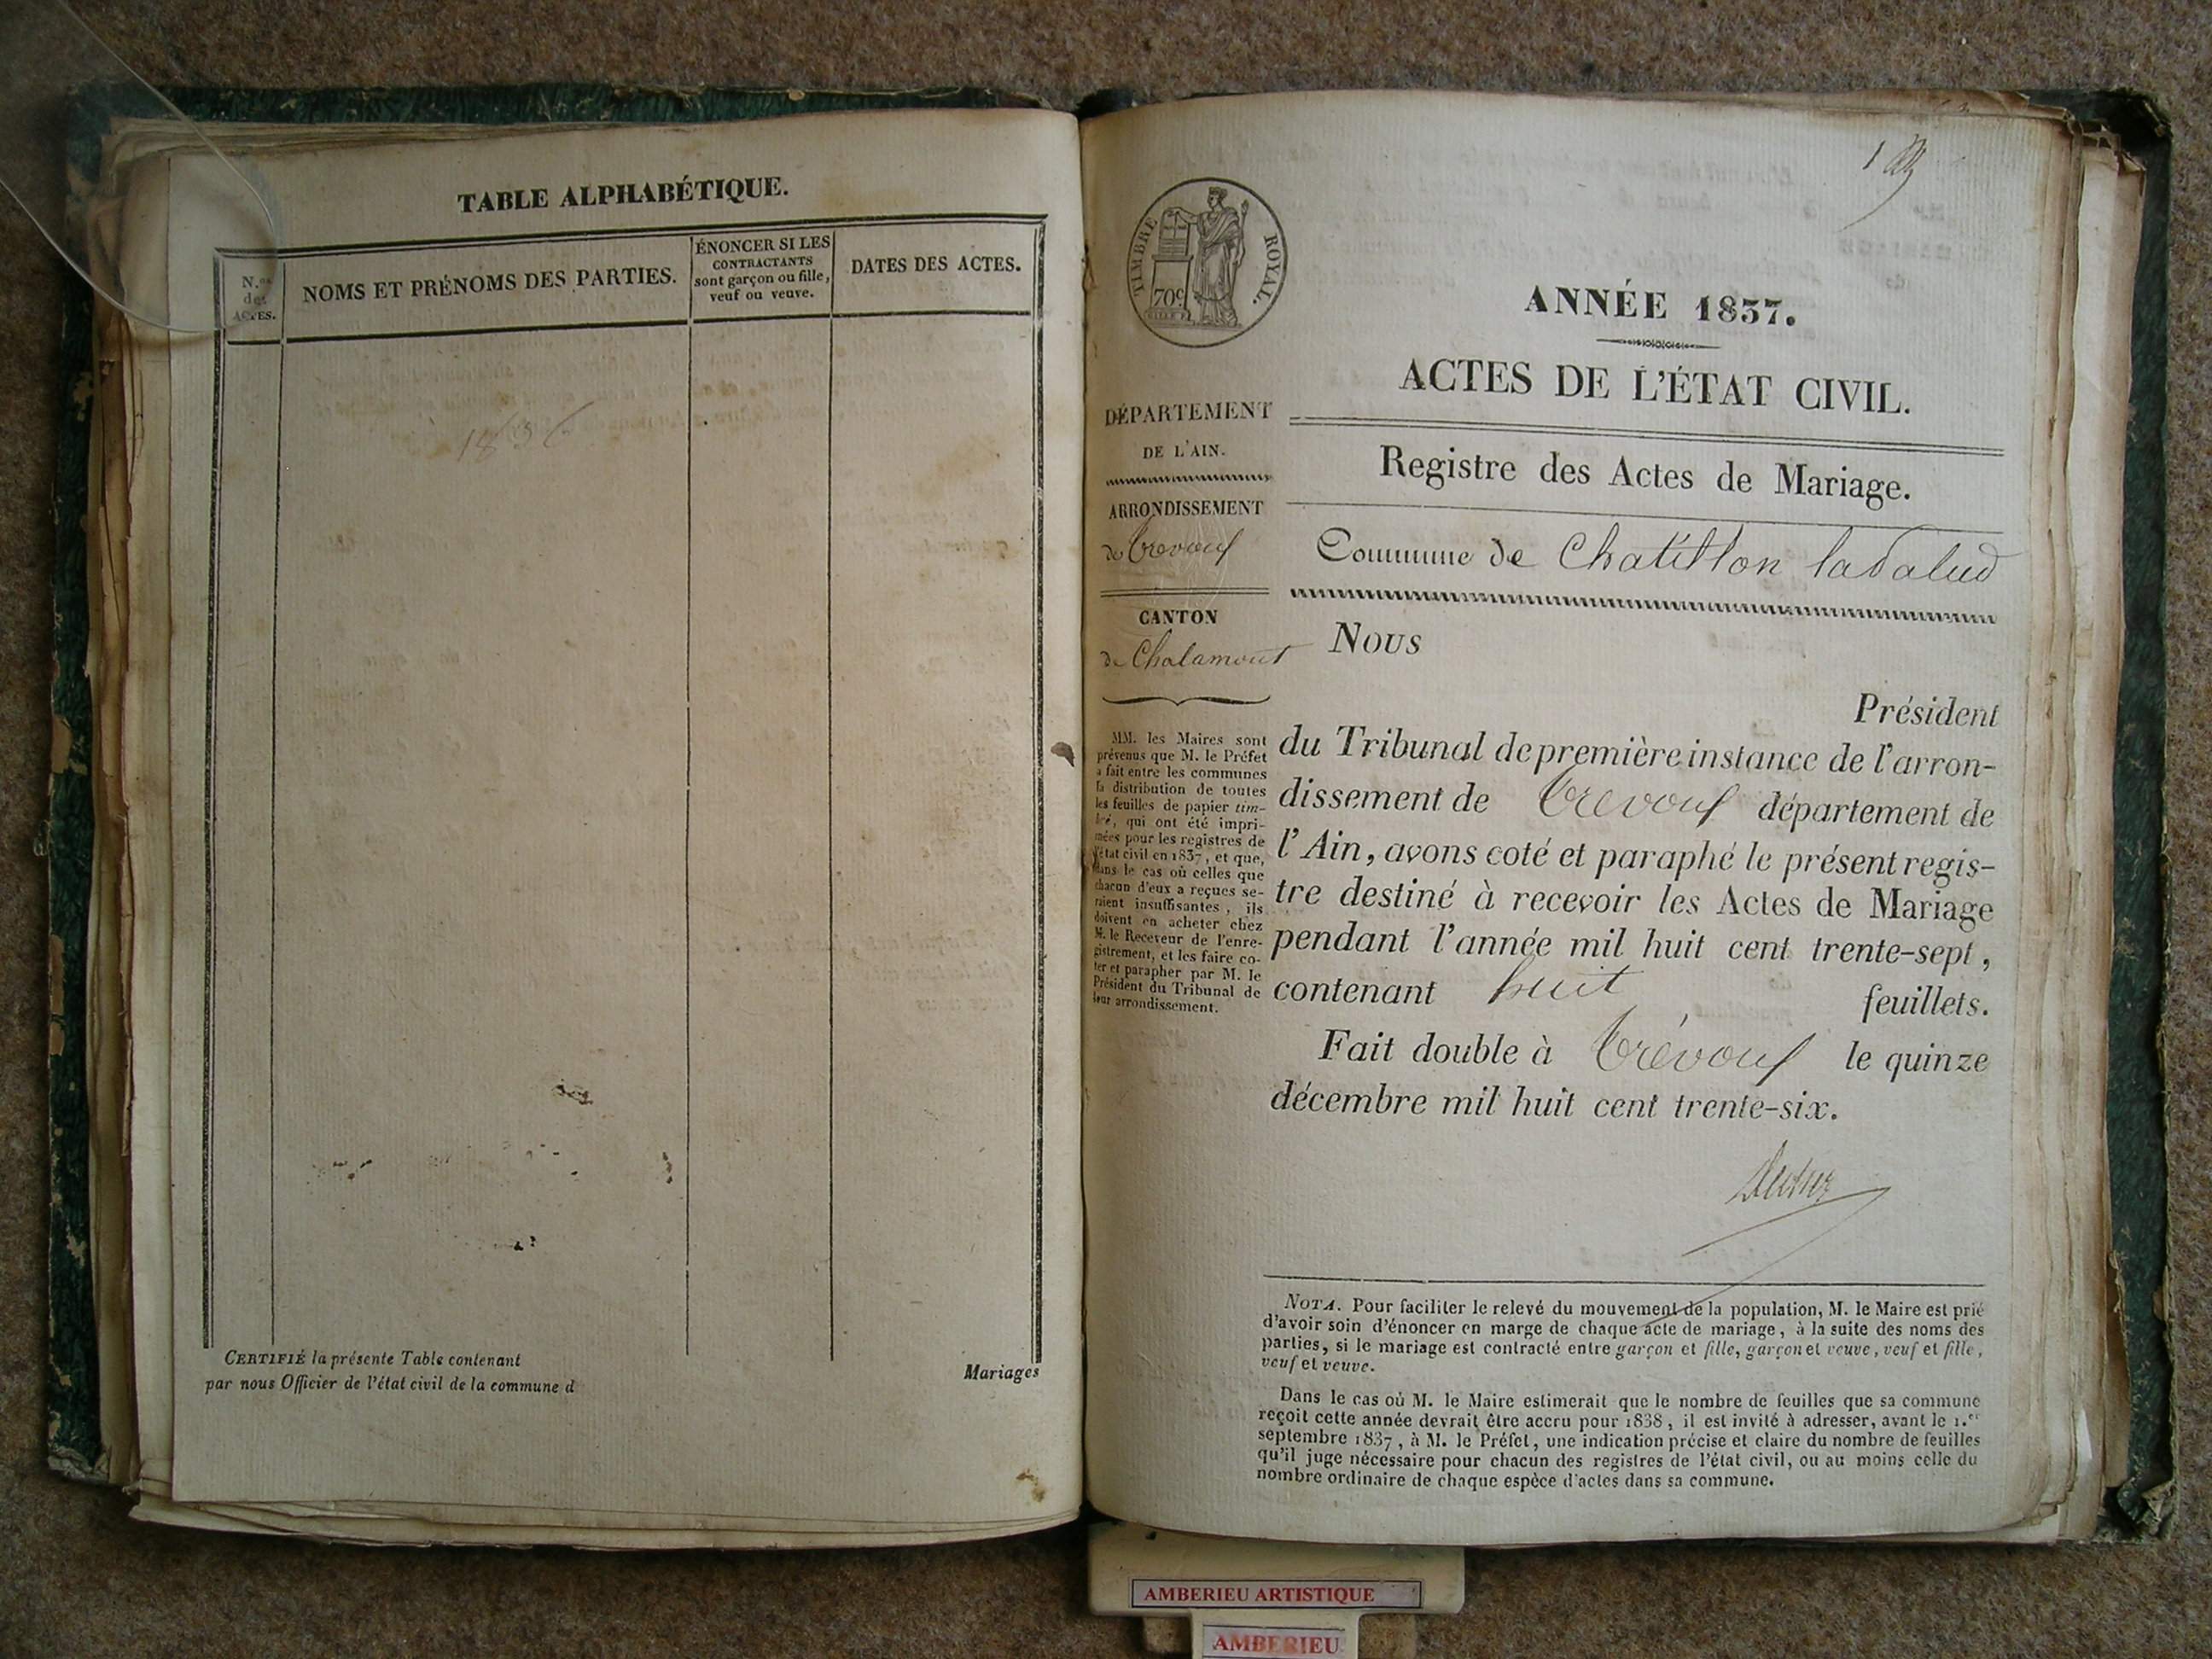 TABLE ALPHABÉTIQUE.
N.os
des
ACTES.
NOMS ET PRÉNOMS DES PARTIES.
ÉNONCER SI LES
CONTRACTANTS
sont garçon ou fille,
veuf ou veuve.
DATES DES ACTES.
1836
CERTIFIÉ la présente Table contenant
Mariages
par nous Officier de l'état civil de la commune d
1
TIMBRE ROYAL.
70c
ANNÉE 1837.
ACTES DE L'ÉTAT CIVIL.
DÉPARTEMENT
DE L'AIN.
ARRONDISSEMENT
de Trevoux
CANTON
de Chalamont
MM. les Maires sont
prévenus que M. le Préfet
a fait entre les communes
la distribution de toutes
les feuilles de papier tim-
bré, qui ont été impri-
mées pour les registres de
l'état civil en 1837, et que,
dans le cas où celles que
chacun d'eux a reçues se-
raient insuffisantes, ils
doivent en acheter chez
M. le Receveur de l'enre-
gistrement, et les faire co-
ter et parapher par M. le
Président du Tribunal de
leur arrondissement.
Registre des Actes de Mariage.
Commune de Chatillon lapalud
Nous
Président
du Tribunal de première instance de l'arron-
dissement de Trevoux département de
l'Ain, avons coté et paraphé le présent regis-
tre destiné à recevoir les Actes de Mariage
pendant l'année mil huit cent trente-sept,
contenant huit feuillets.
Fait double à Trévoux le quinze
décembre mil huit cent trente-six.
NOTA. Pour faciliter le relevé du mouvement de la population, M. le Maire est prié
d'avoir soin d'énoncer en marge de chaque acte de mariage, à la suite des noms des
parties, si le mariage est contracté entre garçon et fille, garçon et veuve, veuf et fille,
veuf et veuve.
Dans le cas où M. le Maire estimerait que le nombre de feuilles que sa commune
reçoit cette année devrait être accru pour 1838, il est invité à adresser, avant le 1.er
septembre 1837, à M. le Préfet, une indication précise et claire du nombre de feuilles
qu'il juge nécessaire pour chacun des registres de l'état civil, ou au moins celle du
nombre ordinaire de chaque espèce d'actes dans sa commune.
AMBERIEU ARTISTIQUE
AMBERIEU